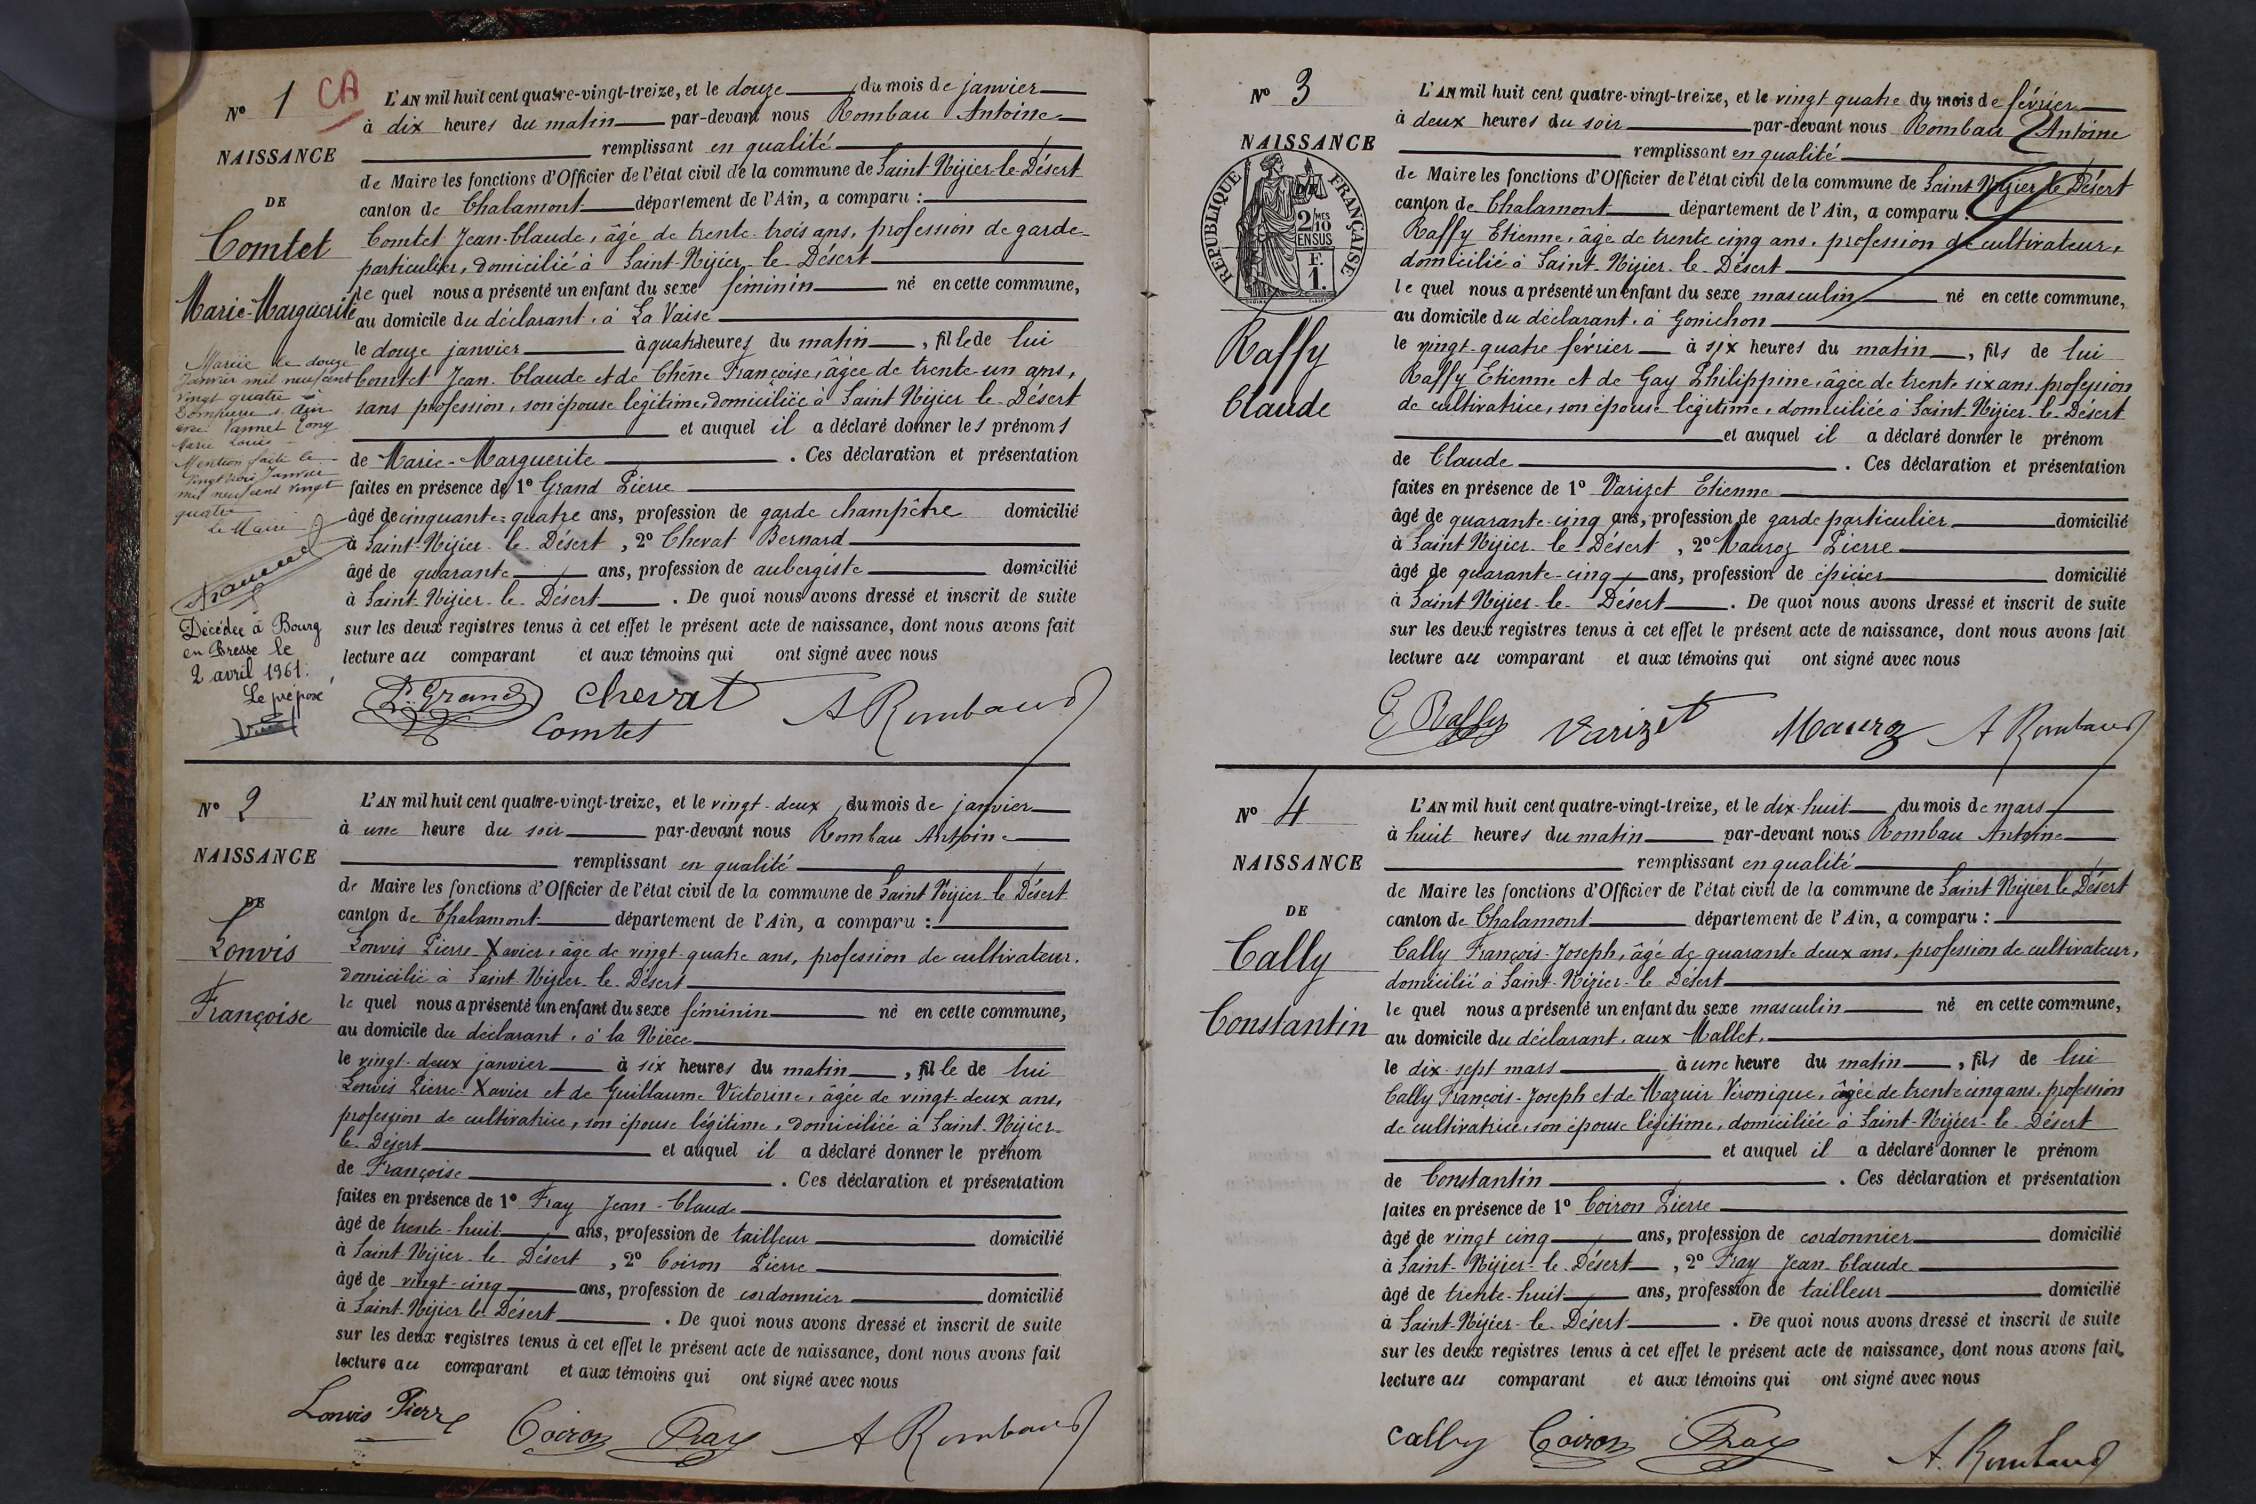 N° 1 CA
NAISSANCE
DE
Comtet
Marie-Marguerite
Mariée le douze
Janvier mil neuf cent
vingt quatre à
Dompierre s. Ain
avec Vannet Tony
Marie Louis
Mention faite le
vingt trois Janvier
mil neuf cent vingt
quatre
Le Maire
Décédée à Bourg
en Bresse le
2 avril 1961.
Le préposé,
L'AN mil huit cent quatre-vingt-treize, et le douze du mois de janvier
à dix heures du matin par-devant nous Rombau Antoine
remplissant en qualité
de Maire les fonctions d'Officier de l'état civil de la commune de Saint-Nizier-le-Désert
canton de Chalamont département de l'Ain, a comparu :
Comtet Jean-Claude, âgé de trente-trois ans, profession de garde-
particulier, domicilié à Saint-Nizier-le-Désert
le quel nous a présenté un enfant du sexe féminin né en cette commune,
au domicile du déclarant, à La Vaise
le douze janvier à quatre heures du matin, fille de lui
Comtet Jean-Claude et de Chêne Françoise, âgée de trente-un ans,
sans profession, son épouse légitime, domiciliée à Saint Nizier le Désert
et auquel il a déclaré donner les prénoms
de Marie-Marguerite. Ces déclaration et présentation
faites en présence de 1° Grand Pierre
âgé de cinquante-quatre ans, profession de garde champêtre domicilié
à Saint-Nizier-le-Désert, 2° Chevat Bernard
âgé de quarante ans, profession de aubergiste domicilié
à Saint-Nizier-le-Désert. De quoi nous avons dressé et inscrit de suite
sur les deux registres tenus à cet effet le présent acte de naissance, dont nous avons fait
lecture au comparant et aux témoins qui ont signé avec nous
P. Grand Chevat A Rombaud
Comtet
N° 2
NAISSANCE
DE
Lonvis
Françoise
L'AN mil huit cent quatre-vingt-treize, et le vingt-deux du mois de janvier
à une heure du soir par-devant nous Rombau Antoine
remplissant en qualité
de Maire les fonctions d'Officier de l'état civil de la commune de Saint Nizier le Désert
canton de Chalamont département de l'Ain, a comparu :
Lonvis Pierre Xavier, âgé de vingt-quatre ans, profession de cultivateur,
domicilié à Saint Nizier-le-Désert
le quel nous a présenté un enfant du sexe féminin né en cette commune,
au domicile du déclarant, à la Nièce
le vingt-deux janvier à six heures du matin, fille de lui
Lonvis Pierre-Xavier et de Guillaume Victorine, âgée de vingt-deux ans,
profession de cultivatrice, son épouse légitime, domiciliée à Saint-Nizier-
le-Désert et auquel il a déclaré donner le prénom
de Françoise. Ces déclaration et présentation
faites en présence de 1° Fray Jean-Claude
âgé de trente-huit ans, profession de tailleur domicilié
à Saint Nizier-le-Désert, 2° Coiron Pierre
âgé de vingt-cinq ans, profession de cordonnier domicilié
à Saint-Nizier le Désert. De quoi nous avons dressé et inscrit de suite
sur les deux registres tenus à cet effet le présent acte de naissance, dont nous avons fait
lecture au comparant et aux témoins qui ont signé avec nous
Lonvis Pierre Coiron Fray A Rombaud
N° 3
NAISSANCE
DE
RÉPUBLIQUE FRANÇAISE
2/10 MES
EN SUS
F.
1.
Raffy
Claude
L'AN mil huit cent quatre-vingt-treize, et le vingt quatre du mois de février
à deux heures du soir par-devant nous Rombau Antoine
remplissant en qualité
de Maire les fonctions d'Officier de l'état civil de la commune de Saint Nizier le Désert
canton de Chalamont département de l'Ain, a comparu :
Raffy Etienne, âgé de trente cinq ans, profession de cultivateur,
domicilié à Saint-Nizier-le-Désert
le quel nous a présenté un enfant du sexe masculin né en cette commune,
au domicile du déclarant, à Gonichon
le vingt-quatre février à six heures du matin, fils de lui
Raffy Etienne et de Gay Philippine, âgée de trente six ans, profession
de cultivatrice, son épouse légitime, domiciliée à Saint-Nizier-le-Désert
et auquel il a déclaré donner le prénom
de Claude. Ces déclaration et présentation
faites en présence de 1° Varizet Etienne
âgé de quarante-cinq ans, profession de garde particulier domicilié
à Saint Nizier-le-Désert, 2° Mauroz Pierre
âgé de quarante-cinq ans, profession de épicier domicilié
à Saint Nizier-le-Désert. De quoi nous avons dressé et inscrit de suite
sur les deux registres tenus à cet effet le présent acte de naissance, dont nous avons fait
lecture au comparant et aux témoins qui ont signé avec nous
E Raffy Varizet Mauroz A Rombaud
N° 4
NAISSANCE
DE
Cally
Constantin
L'AN mil huit cent quatre-vingt-treize, et le dix-huit du mois de mars
à huit heures du matin par-devant nous Rombau Antoine
remplissant en qualité
de Maire les fonctions d'Officier de l'état civil de la commune de Saint Nizier le Désert
canton de Chalamont département de l'Ain, a comparu :
Cally François-Joseph, âgé de quarante deux ans, profession de cultivateur,
domicilié à Saint-Nizier-le Désert
le quel nous a présenté un enfant du sexe masculin né en cette commune,
au domicile du déclarant, aux Mallet,
le dix-sept mars à une heure du matin, fils de lui
Cally François-Joseph et de Mazuir Véronique, âgée de trente cinq ans, profession
de cultivatrice, son épouse légitime, domiciliée à Saint-Nizier-le-Désert
et auquel il a déclaré donner le prénom
de Constantin. Ces déclaration et présentation
faites en présence de 1° Coiron Pierre
âgé de vingt cinq ans, profession de cordonnier domicilié
à Saint-Nizier-le-Désert, 2° Fray Jean-Claude
âgé de trente-huit ans, profession de tailleur domicilié
à Saint-Nizier-le-Désert. De quoi nous avons dressé et inscrit de suite
sur les deux registres tenus à cet effet le présent acte de naissance, dont nous avons fait
lecture au comparant et aux témoins qui ont signé avec nous
Cally Coiron Fray A. Rombaud